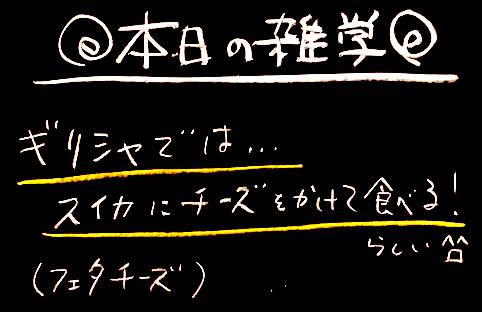 @本日の雑学@
ギリシャでは...
スイカにチーズをかけて食べる!
らしい
(フェタチーズ)